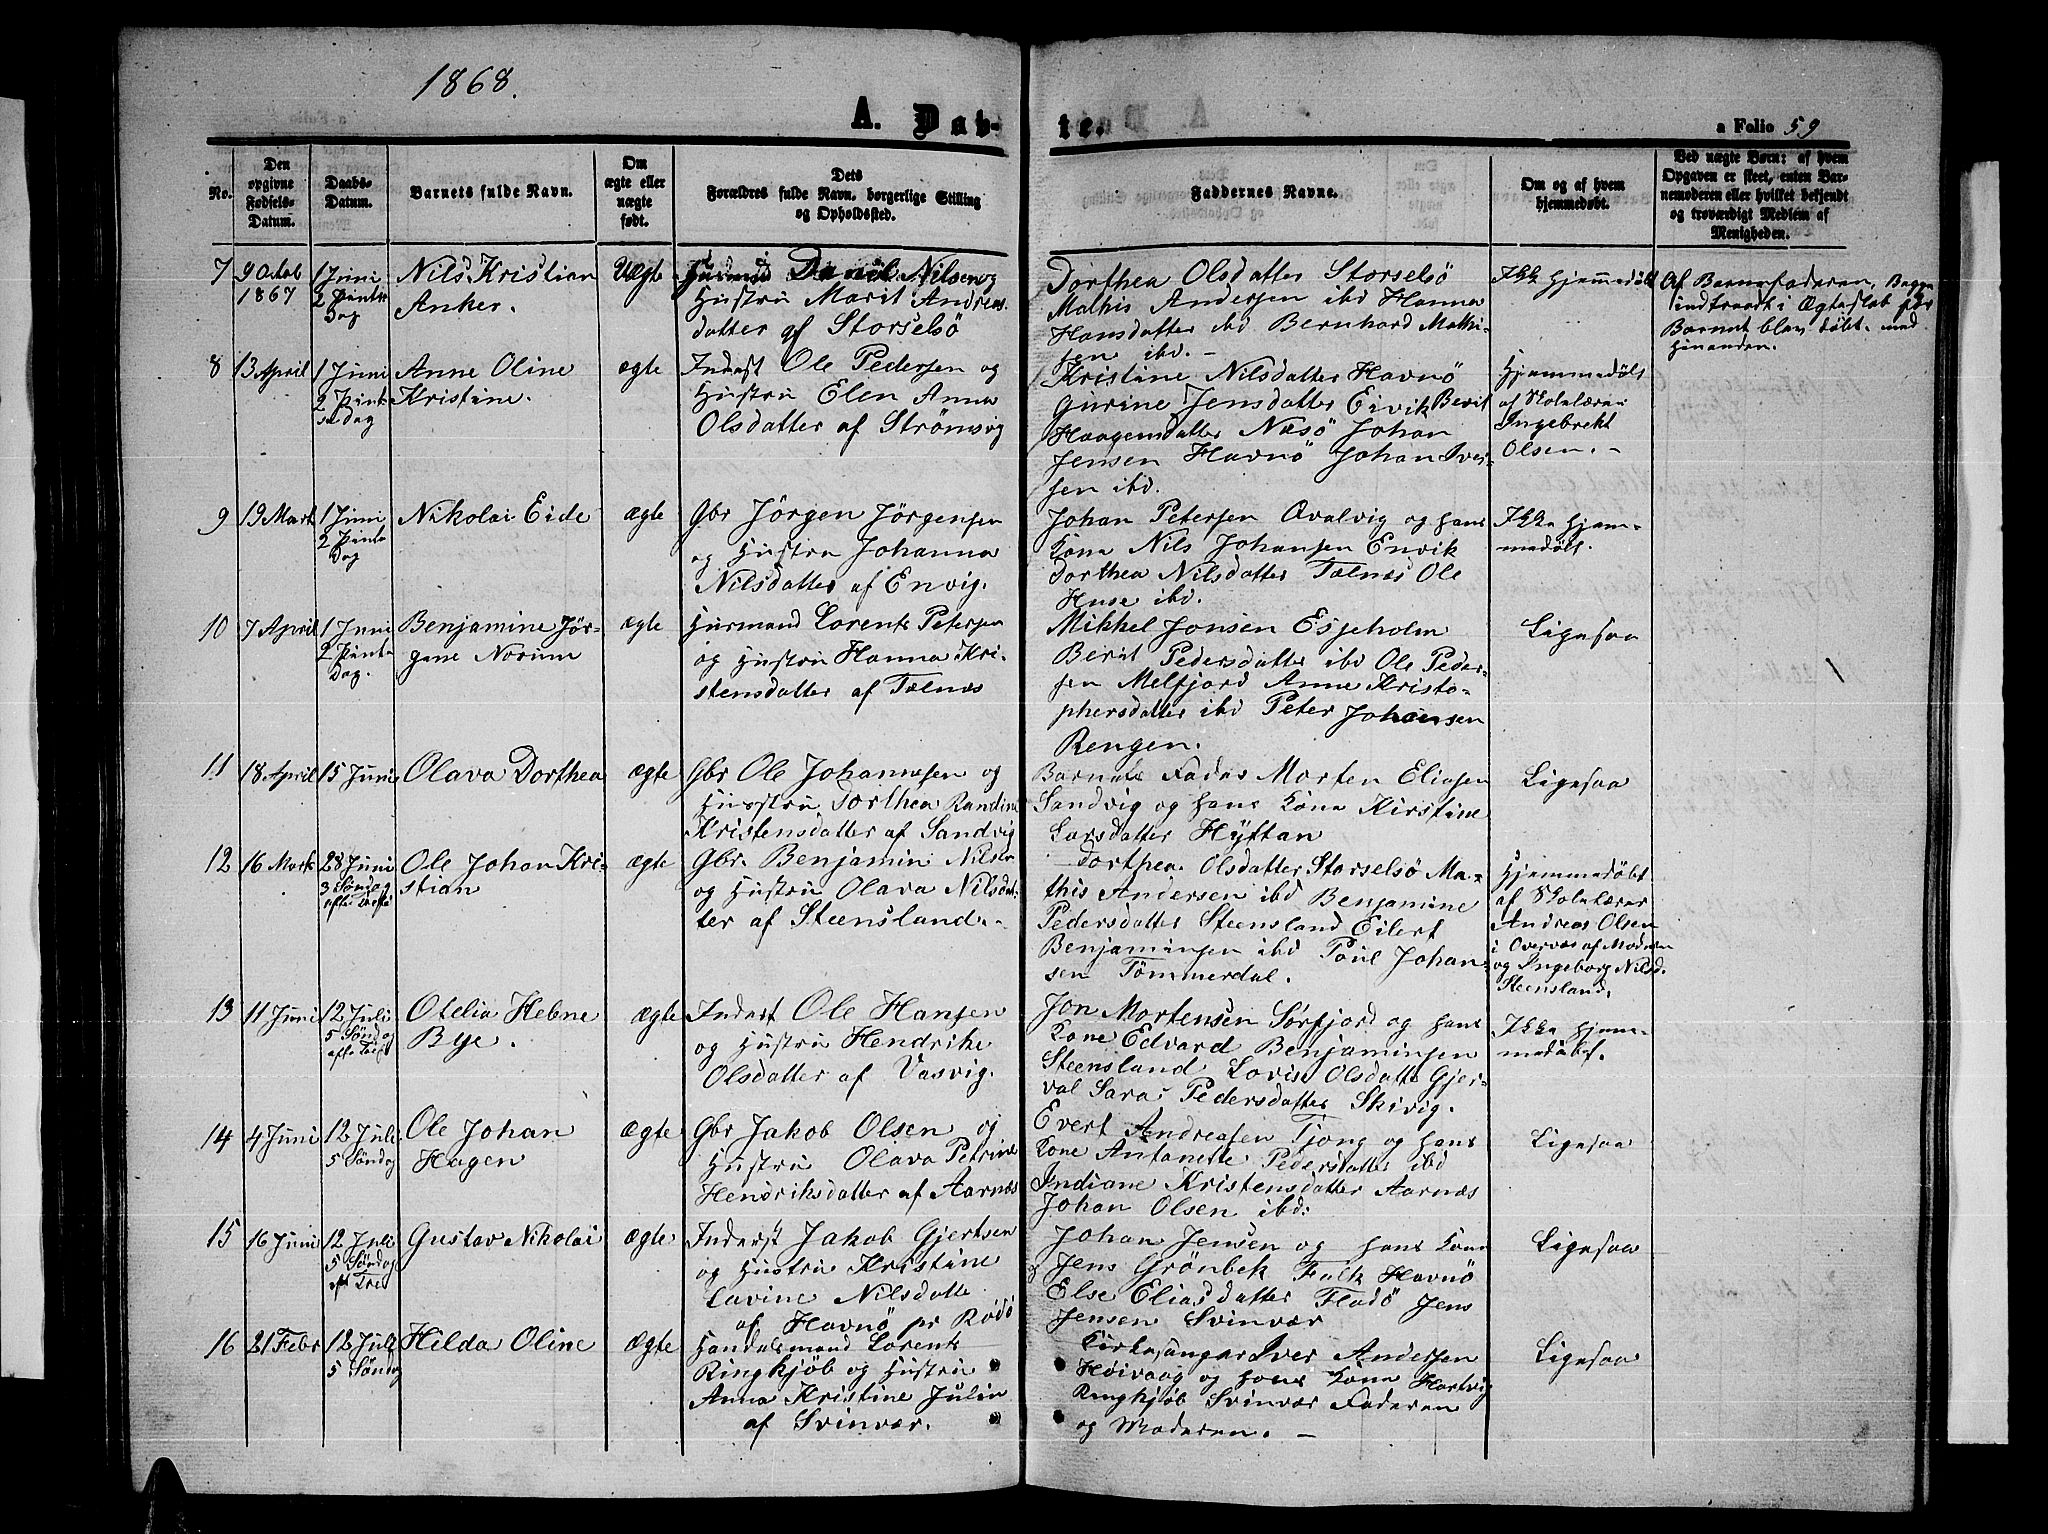 1868.
A. Døb-
te.
a Folio 59
No.
Den
opgivne
Fødsels-
Datum.
Daabs-
Datum.
Barnets fulde Navn.
Om
ægte eller
uægte
født.
Dets
Forældres fulde Navn, borgerlige Stilling
og Opholdssted.
Faddernes Navne.
Om og af hvem
hjemmedøbt.
Ved uægte Børn: af hvem
Opgaven er skeet, enten Bar-
nemoderen eller hvilket bekjendt
og troværdigt Medlem af
Menigheden.
7
9 Octob
1867
1 Juni
2 Pintse
Dag
Nils Kristian
Anker.
Uægte
Huusmand Danel Nilsen og
Hustru Marit Andreas-
datter af Storselsö
Dorthea Olsdatter Storselsö
Mathis Andersen ibd Hanna
Hansdatter ibd Bernhard Mathi-
sen ibd. -
Ikke Hjemmedöbt
Af Barnefaderen, Begge
indtraadt i Ægteskab før
Barnet blev döbt med
hinanden.
8
13 April
1 Juni
2 Pint-
sedag
Anne Oline
Kristine.
ægte
Inderst Ole Pedersen og
Hustru Elen Anna
Olsdatter af Strömsvig
Kristine Nilsdatter Havnö
Gurine Jensdatter Eivik Berit
Haagensdatter Næsö Johan
Jensen Havnö Johan Iver-
sen ibd.
Hjemmedöbt
af Skolelærer
Ingebrekt
Olsen. -
9
19 Mart
1 Juni
2 Pints
Dag
Nikolai Eide
ægte
Gbr Jörgen Jörgensen
og Hustru Johanna
Nilsdatter af Envig.
Johan Petersen Qvalvig og hans
Kone Nils Johansen Envik
Dorthea Nilsdatter Tælnes Ole
Huse ibd.
Ikke hjem-
medöbt.
10
7 April
1 Juni
2 Pint-
Dag.
Benjamine Jör-
gene Norum
ægte
Husmand Lorents Petersen
og Hustru Hanna Kri-
stensdatter af Tælnæs
Mikkel Jonsen Esjeholm
Berit Pedersdatter ibd Ole Peder-
sen Melfjord Anne Kristo-
phersdatter ibd Peter Johansen
Rengen.
Ligesaa
11
18 April
15 Juni
Olava Dorthea
ægte
Gbr Ole Johannesen og
Hustru Dorthea Randine
Kristensdatter af Sandvig
Barnets Fader Morten Eliasen
Sandvig og hans Kone Kirstine
Larsdatter Hÿttan
Ligesaa
12
16 Mark
28 Juni
3 Søndag
after Tref
Ole Johan Kri-
stian
ægte
Gbr. Benjamin Nilsen
og Hustru Olava Nilsdat-
ter af Steensland. -
Dorthea Olsdatter Storselsö Ma-
this Andersen ibd Benjamine
Pedersdatter Steensland Eilert
Benjaminsen ibd Poul Johan-
sen Tömmerdal.
Hjemmedöbt
af Skolelærer
Andreas Olsen
i Övernæs af Moderen
og Ingeborg Nilsd.
Steensland.
13
11 Juni
12 Juli
5 Sönd og
aft. Tref
Otelia Helene
Bye.
ægte
Inderst Ole Hansen
og Hustru Hendrike
Olsdatter af Vasvig.
Jon Mortensen Sörfjord og hans
Kone Edvard Benjaminsen
Steensland Lovise Olsdatte Gjer-
val Sara Pedersdatter Skivig.
Ikke hjem-
medöbt.
14
4 Juni
12 Juli
5 Söndag
Ole Johan
Hagen
ægte
Gbr Jakob Olsen og
Hustru Olava Petrine
Hendriksdatter af Aarnæs
Evert Andreasen Tjong og hans
Kone Antonette Pedersdatter ibd
Indiane Kristensdatter Aarnæs
Johan Olsen ibd:
Ligesaa
15
16 Juni
12 Juli
5 Söndag
eft Tref
Gustav Nikolai
ægte
Inderst Jakob Gjertsen
og Hustru Kristine
Lovine Nilsdatte
af Havnö pr Rödö
Johan Jensen og hans Kone
Jens Grönbek Falk Havnö
Else Eliasdatter Flodö Jens
Jensen Svinvær
Ligesaa
16
21 Febr
12 Juli
5 Söndag
Hilda Oline
Ægte
Handelsmand Lorents
Ringkjöb og Hustru
Anna Kristine Julin
af Svinvær.
Kirkesanger Iver Andersen
Höivaag og hans Kone Hartvig
Ringkjöb Svinvær Faderen
og Moderen. -
Ligesaa